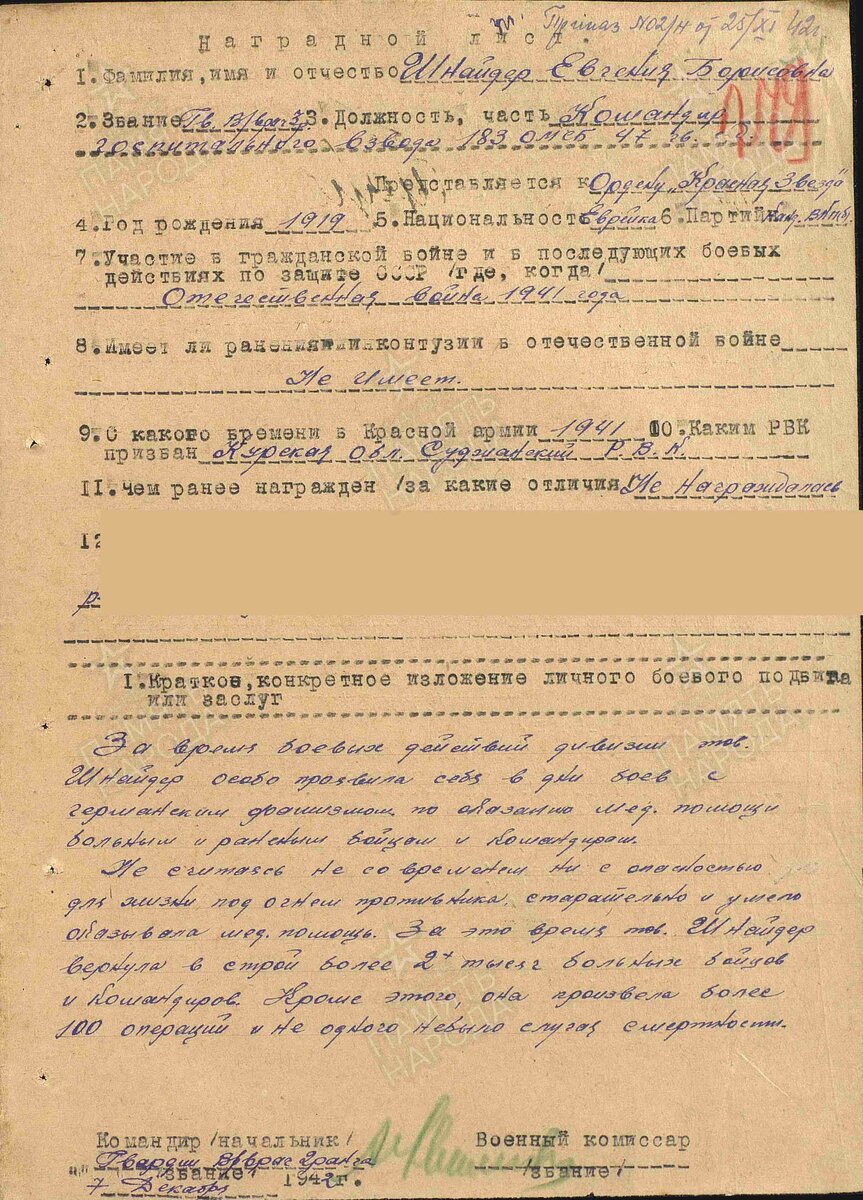 Приказ №02/н от 25/XI 42г.
Наградной лист.
1.Фамилия,имя и отчество Шнайдер Евгения Борисовна
2.Звание Гв. В/врач 3 3.Должность, часть Командир
госпитального взвода 183 омсб 47 гв. с.д.
Представляется к Ордену „Красная Звезда"
4.Год рождения 1919 5.Национальность Еврейка 6.Партийн. Канд. ВКП/б/
7.Участие в гражданской войне и в последующих боевых
действиях по защите СССР /где, когда/
Отечественная война 1941 года
8.Имеет ли ранения или контузии в отечественной войне
Не имеет.
9.С какого времени в Красной армии 1941 10.Каким РВК
призван Курская обл. Суджанский Р.В.К.
11.Чем ранее награжден /за какие отличия/ Не награждалась
12
р.
I.Краткое,конкретное изложение личного боевого подвига
или заслуг
За время боевых действий дивизии тов.
Шнайдер особо проявила себя в дни боев с
германским фашизмом по оказанию мед. помощи
больным и раненым бойцам и командирам.
Не считаясь не со временем ни с опасностью
для жизни под огнем противника, старательно и умело
оказывала мед. помощь. За это время тов. Шнайдер
вернула в строй более 2х тысяч больных бойцов
и командиров. Кроме этого, она произвела более
100 операций и не одного небыло случая смертности.
Командир /начальник/ Военный комиссар
Гвардии В/врач 2 ранга
/звание/ /звание/
"7" Декабря 1942г.
ПАМЯТЬ
НАРОДА